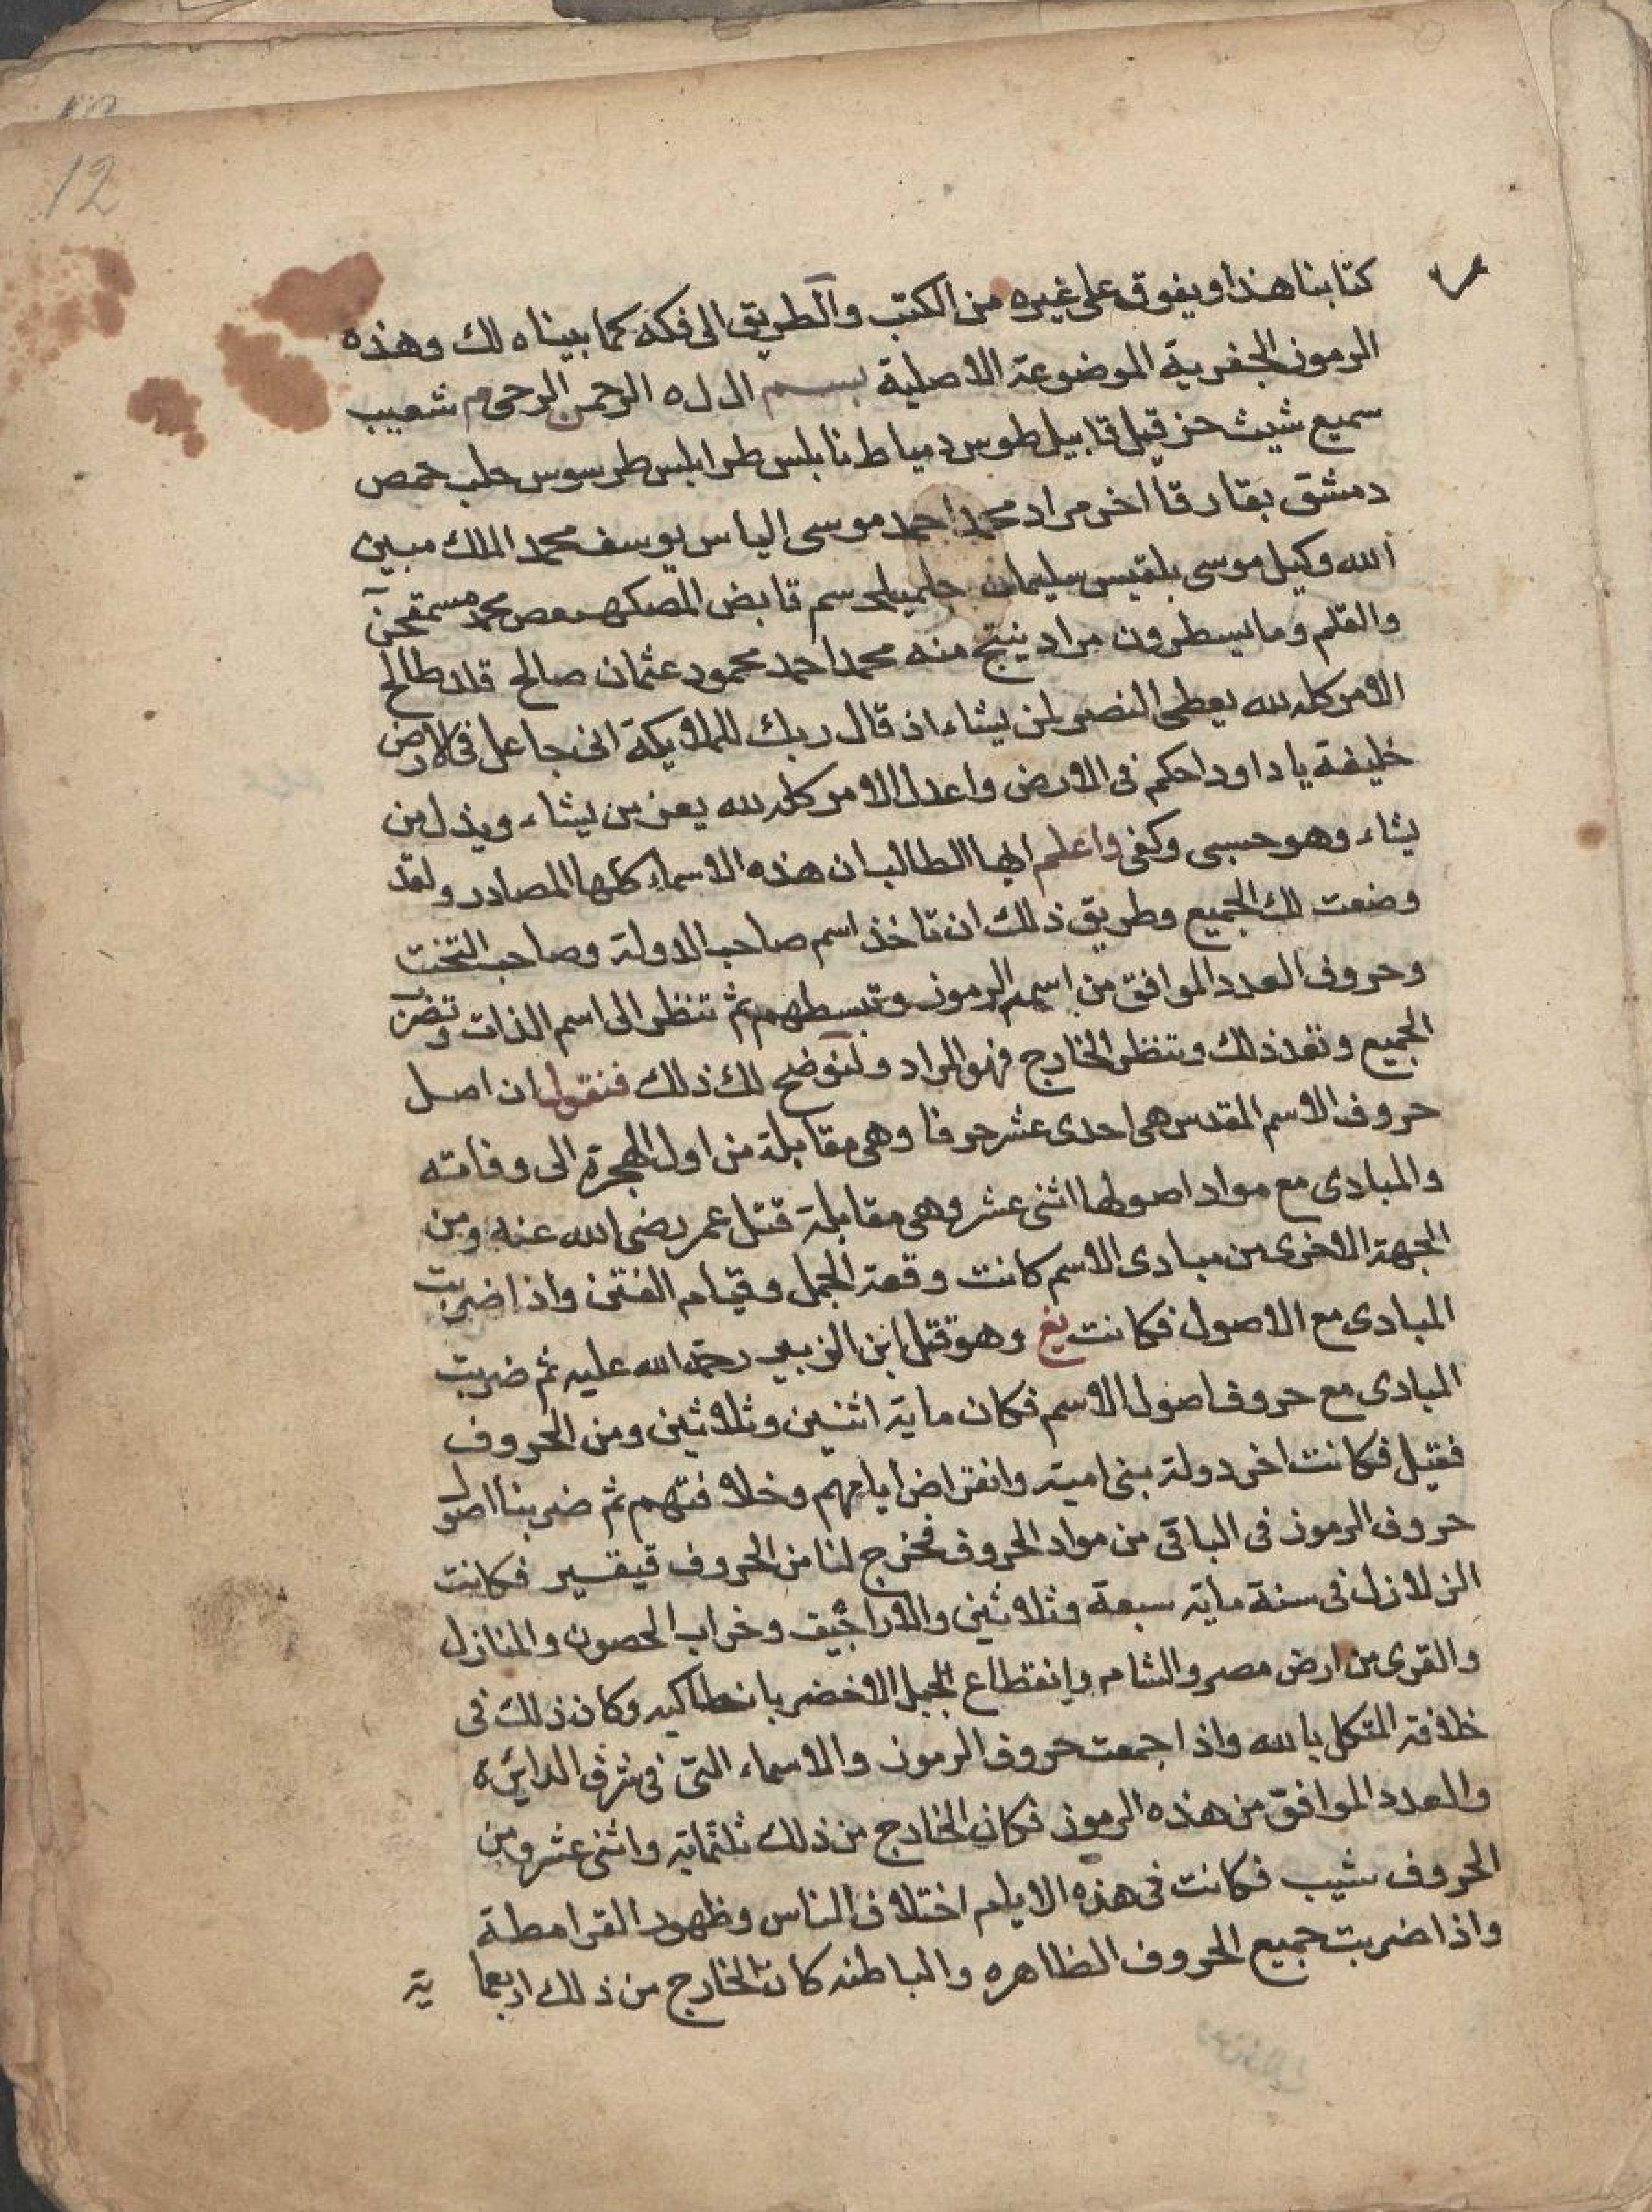 12
كتابنا هذا ويفوق على غيره من الكتب والطريق الى فكه كما بيناه لك وهذه
الرموز الجفرية الموضوعة الاصلية بسم ال ل ه الرحمن الرحى م شعيب
سميع شيث حزقيل قابيل طوس دمياط نابلس طرابلس طرسوس حلب حمص
دمشق بقا رقا اخر مراد محمد احمد موسى الياس يوسف محمد الملك مبين
الله وكيل موسى بلقيس سليمان قابض محمد
والقلم وما يسطرون مراد ينتج منه محمد احمد محمود عثمان صالح قلا طالح
الامر كله لله يعطى النصر لمن يشاء اذ قال ربك للملايكة انى جاعل فى الارض
خليفة يا داود احكم فى الارض واعدل الامر كله لله يعز من يشاء ويذل من
يشاء وهو حسبى وكفى واعلم ايها الطالب ان هذه الاسماء كلها المصادر ولقد
وضعت لك الجميع وطريق ذلك ان تاخذ اسم صاحب الدولة وصاحب التخت
وحروف العدد الموافق من اسم الرموز وتبسطهم ثم تنظر الى اسم الذات وتضرب
الجميع وتعد ذلك وتنظر الخارج فهو المراد ولنوضح لك ذلك فنقول ان اصل
حروف الاسم المقدس هى احدى عشر حرفا وهى مقابلة من اول الهجرة الى وفاته
والمبادى مع مواد اصولها اثنى عشر وهى مقابلة قتل عمر رضى الله عنه ومن
الجهة الاخرى من مبادى الاسم كانت وقعة الجمل وقيام الفتن واذا ضربت
المبادى مع الاصول فكانت وهو قتل ابن الزبير رحمة الله عليه ثم ضربت
المبادى مع حروف اصول الاسم فكان ماية اثنين وثلاثين ومن الحروف
فقيل فكانت اخر دولة بنى امية وانقراض ايامهم وخلافتهم ثم ضربنا اصول
حروف الرموز فى الباقى من مواد الحروف فخرج لنا من الحروف قيقسير فكانت
الزلازل فى سنة ماية سبعة وثلاثين والاراجيف وخراب الحصون والمنازل
والقرى من ارض مصر والشام وانقطاع الجبل الاخضر بانطاكيه وكان ذلك فى
خلافة المتكل بالله واذا جمعت حروف الرموز والاسماء التى فى شرف الدايرة
والعدد الموافق من هذه الرموز فكان الخارج من ذلك ثلثماية واثنى عشر ومن
الحروف شيب فكانت فى هذه الايام اختلاف الناس وظهور القرامطة
واذا ضربت جميع الحروف الظاهره والباطنه كان الخارج من ذلك اربعما ية